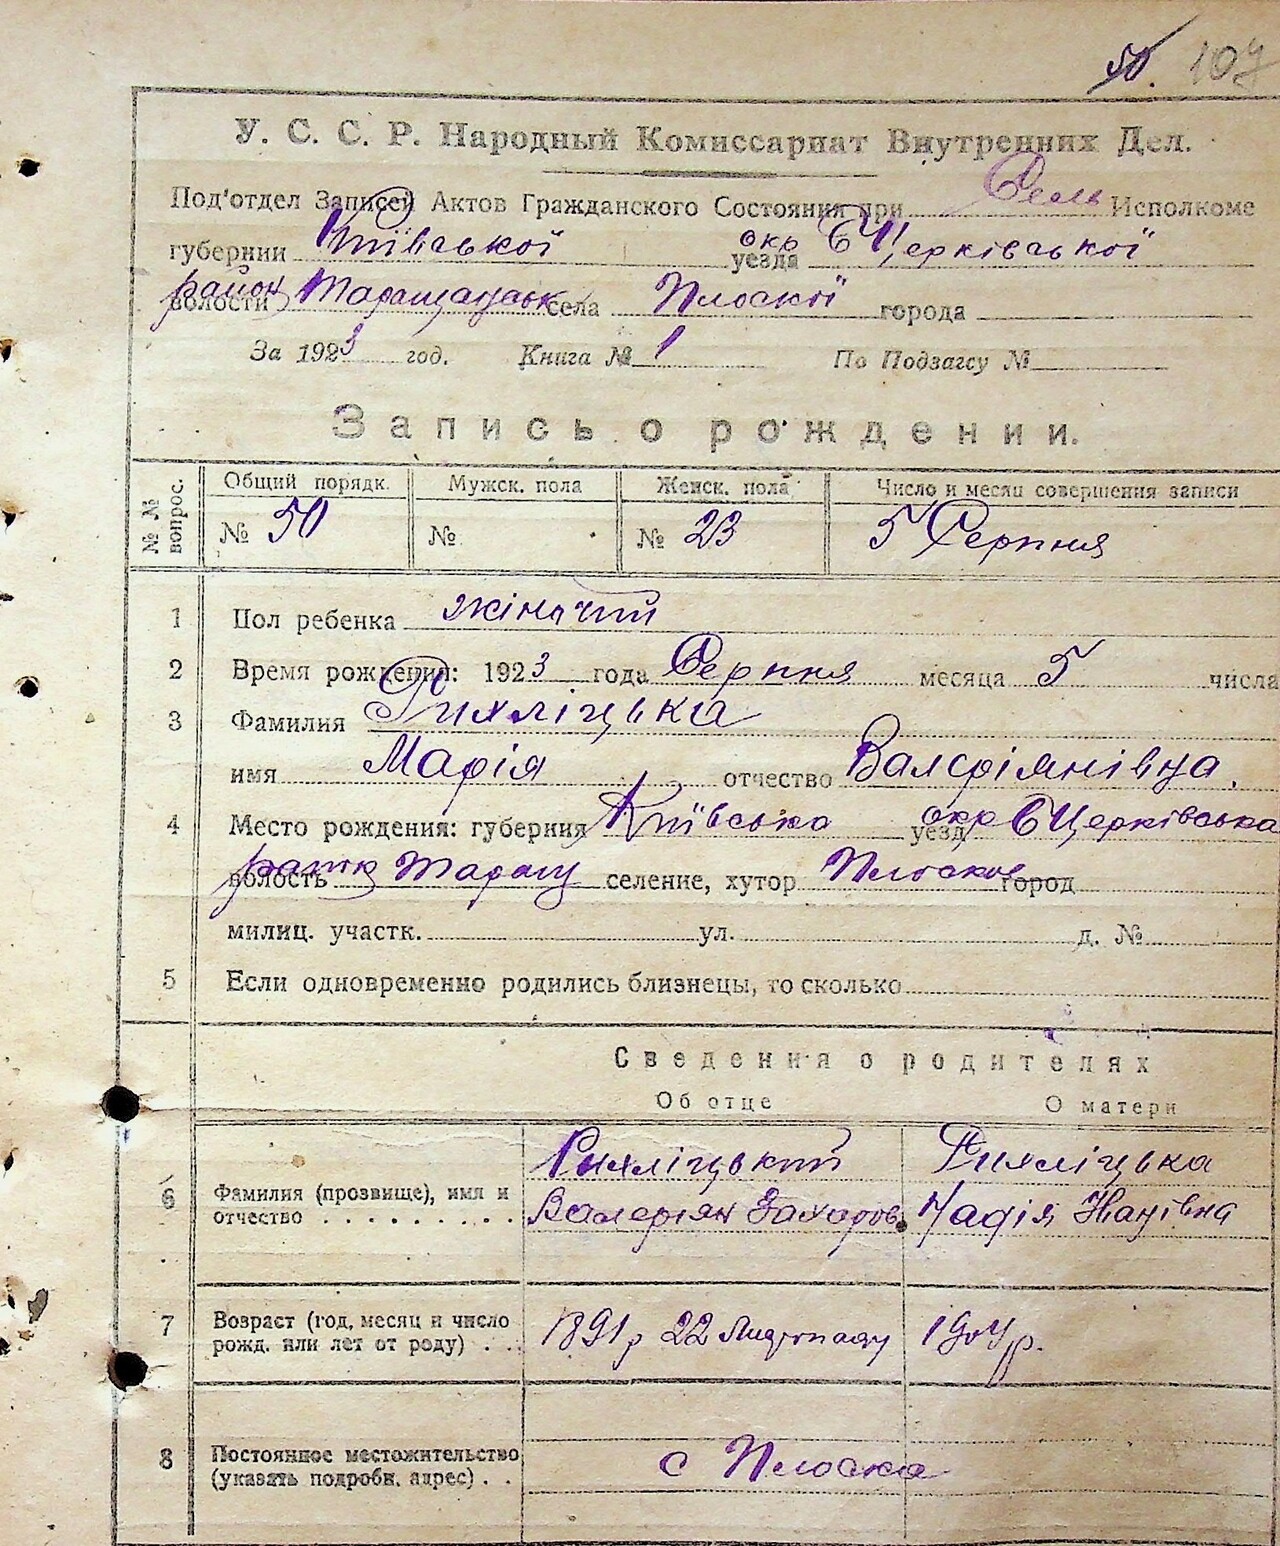 50. 107
У. С. С. Р. Народный Комиссариат Внутренних Дел.
Под'отдел Записей Актов Гражданского Состояния при Сель Исполкоме
губернии Київської окр уезда БЦерківської
район волости Таращанськ села Плоскої города
За 1923 год. Книга № 1 По Подзагсу №
Запись о рождении.
№ № вопрос. Общий порядк. Мужск. пола Женск. пола Число и месяц совершения записи
№ 50 № № 23 5 Серпня
1 Пол ребенка жіночий
2 Время рождения: 1923 года Серпня месяца 5 числа
3 Фамилия Рихліцька
имя Марія отчество Валєріянівна.
4 Место рождения: губерния Київська уезд окр БЦерківська
волость район Таращ селение, хутор Плоское город
милиц. участк. ул. д. №
5 Если одновременно родились близнецы, то сколько
Сведения о родителях
Об отце О матери
Рихліцький Рихліцька
6 Фамилия (прозвище), имя и отчество . . . . . . . . . . Валеріян Захаров. Надія Іванівна
7 Возраст (год, месяц и число рожд. или лет от роду) . . . 1891 р 22 Листопаду 1904 р.
8 Постоянное местожительство (указать подробн. адрес) . . с Плоска